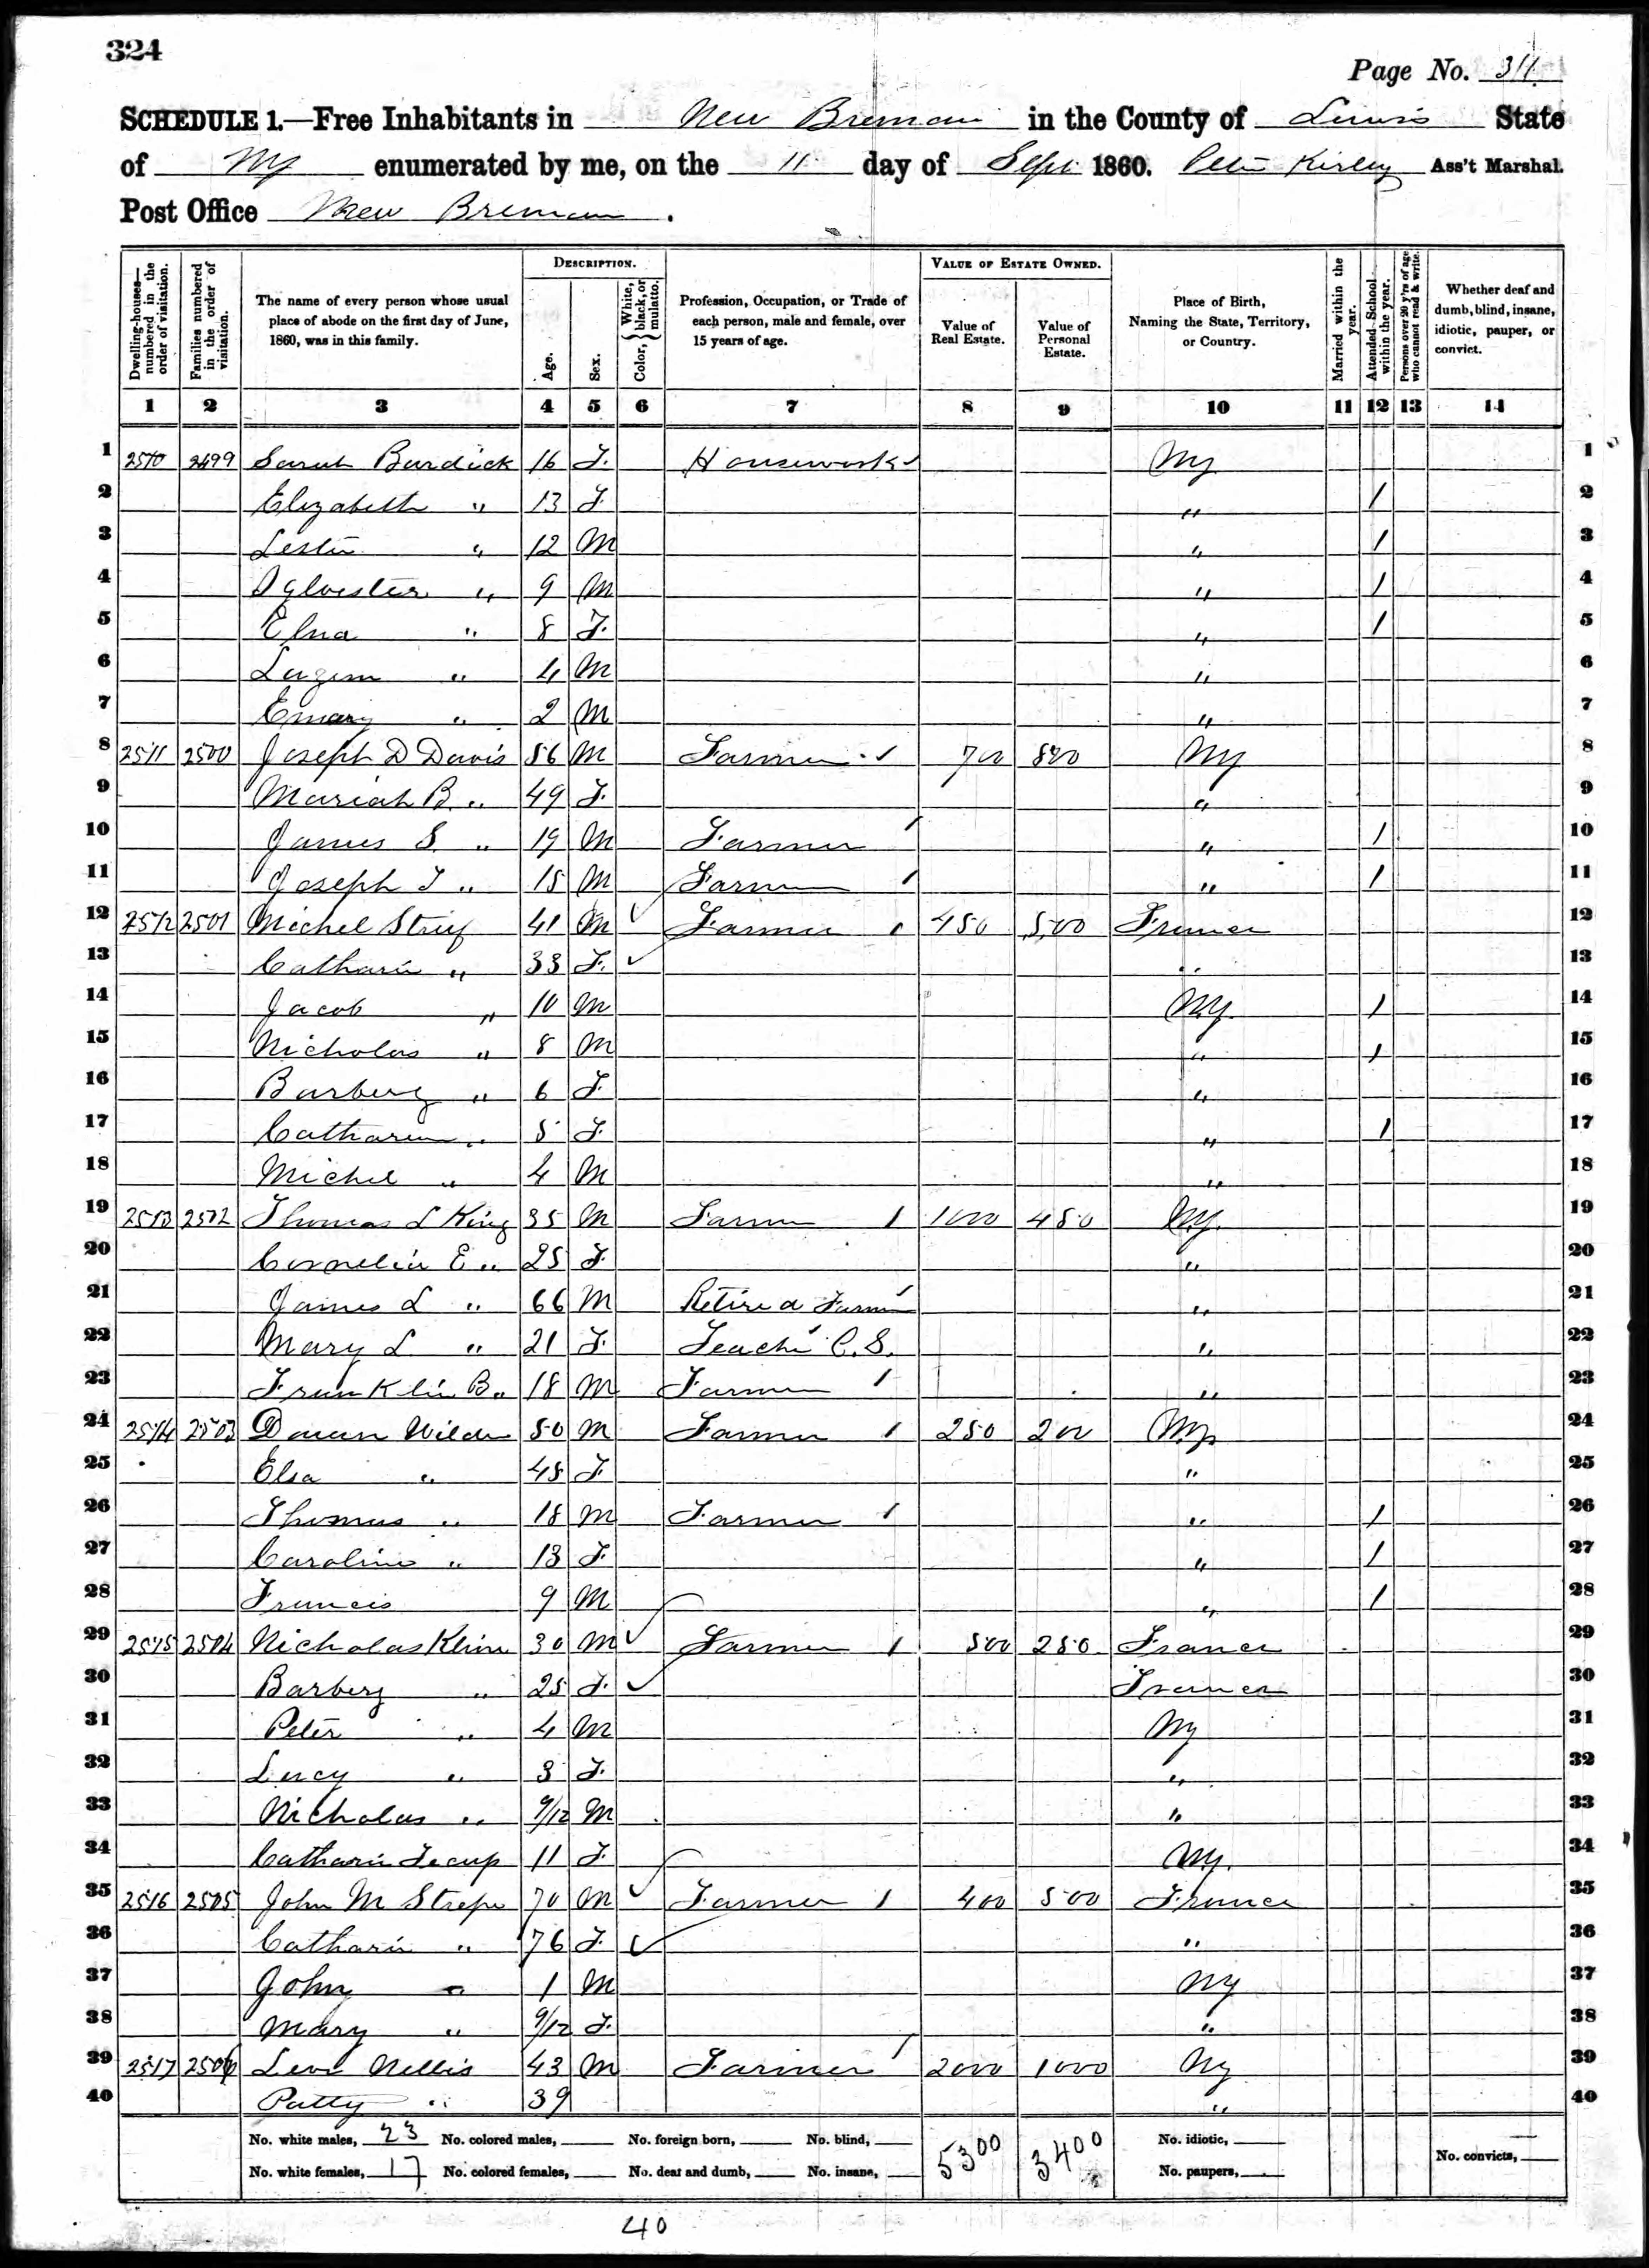 324
Page No. 311
SCHEDULE 1.—Free Inhabitants in New Bremen in the County of Lewis State
of NY enumerated by me, on the 11 day of Sept 1860. Peter Kirley Ass't Marshal.
Post Office New Bremen.
Dwelling-houses—numbered in the order of visitation. Families numbered in the order of visitation. The name of every person whose usual place of abode on the first day of June, 1860, was in this family. DESCRIPTION. Age. Sex. Color, White, black, or mulatto. Profession, Occupation, or Trade of each person, male and female, over 15 years of age. VALUE OF ESTATE OWNED. Value of Real Estate. Value of Personal Estate. Place of Birth, Naming the State, Territory, or Country. Married within the year. Attended School within the year. Persons over 20 y'rs of age who cannot read & write. Whether deaf and dumb, blind, insane, idiotic, pauper, or convict.
1 2 3 4 5 6 7 8 9 10 11 12 13 14
1 2510 2499 Sarah Burdick 16 F. Housework NY 1
2 Elizabeth " 13 F " / 2
3 Lester " 12 M " / 3
4 Sylvester " 9 M " / 4
5 Elna " 8 F. " / 5
6 " 4 M " 6
7 Emary " 2 M " 7
8 2511 2500 Joseph D Davis 56 M Farmer 700 800 NY 8
9 Mariah B. " 49 F. " 9
10 James S. " 19 M Farmer " / 10
11 Joseph T " 15 M Farmer " / 11
12 2512 2501 Michel Strif 41 M Farmer 450 500 France 12
13 Catharin " 33 F. " 13
14 Jacob " 10 M N.Y. / 14
15 Nicholas " 8 M " / 15
16 Barbery " 6 F " 16
17 Catharin " 5 F " / 17
18 Michel " 4 M " 18
19 2513 2502 Thomas L King 35 M Farmer 1000 450 N.Y. 19
20 Cornelia E " 25 F. " 20
21 James L " 66 M Retired Farmer " 21
22 Mary L " 21 F. Teacher C.S. " 22
23 Franklin B " 18 M Farmer " 23
24 2514 2503 Wilder 50 M Farmer 250 200 NY 24
25 Elsa " 48 F " 25
26 Thomas " 18 M Farmer " / 26
27 Caroline " 13 F. " / 27
28 Francis 9 M " / 28
29 2515 2504 Nicholas Kline 30 M Farmer 500 250 France 29
30 Barbery " 25 F. France 30
31 Peter " 4 M NY 31
32 Lucy " 3 F. " 32
33 Nicholas " 9/12 M " 33
34 Catharin Jecup 11 F. NY. 34
35 2516 2505 John M Strepe 70 M Farmer 400 500 France 35
36 Catharin " 76 F. " 36
37 John " 1 M NY 37
38 Mary " 9/12 F. " 38
39 2517 2506 Levi Nellis 43 M Farmer 2000 1000 NY 39
40 Patty " 39 " 40
No. white males, 23 No. colored males, No. foreign born, No. blind, 5300 3400 No. idiotic,
No. white females, 17 No. colored females, No. deaf and dumb, No. insane, No. paupers, No. convicts,
40